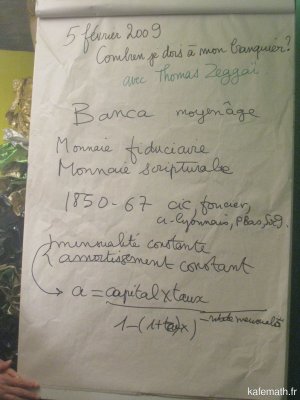 5 février 2009
Combien je dois à mon banquier?
avec Thomas Zeggaï.
Banca moyenâge
Monnaie fiduciaire
Monnaie scripturale
1850-67 CIC, foncier,
cr. lyonnais, PBas, SG.
mensualité constante
amortissement constant
a = capital x taux
1-(1+taux)
kafemath.fr